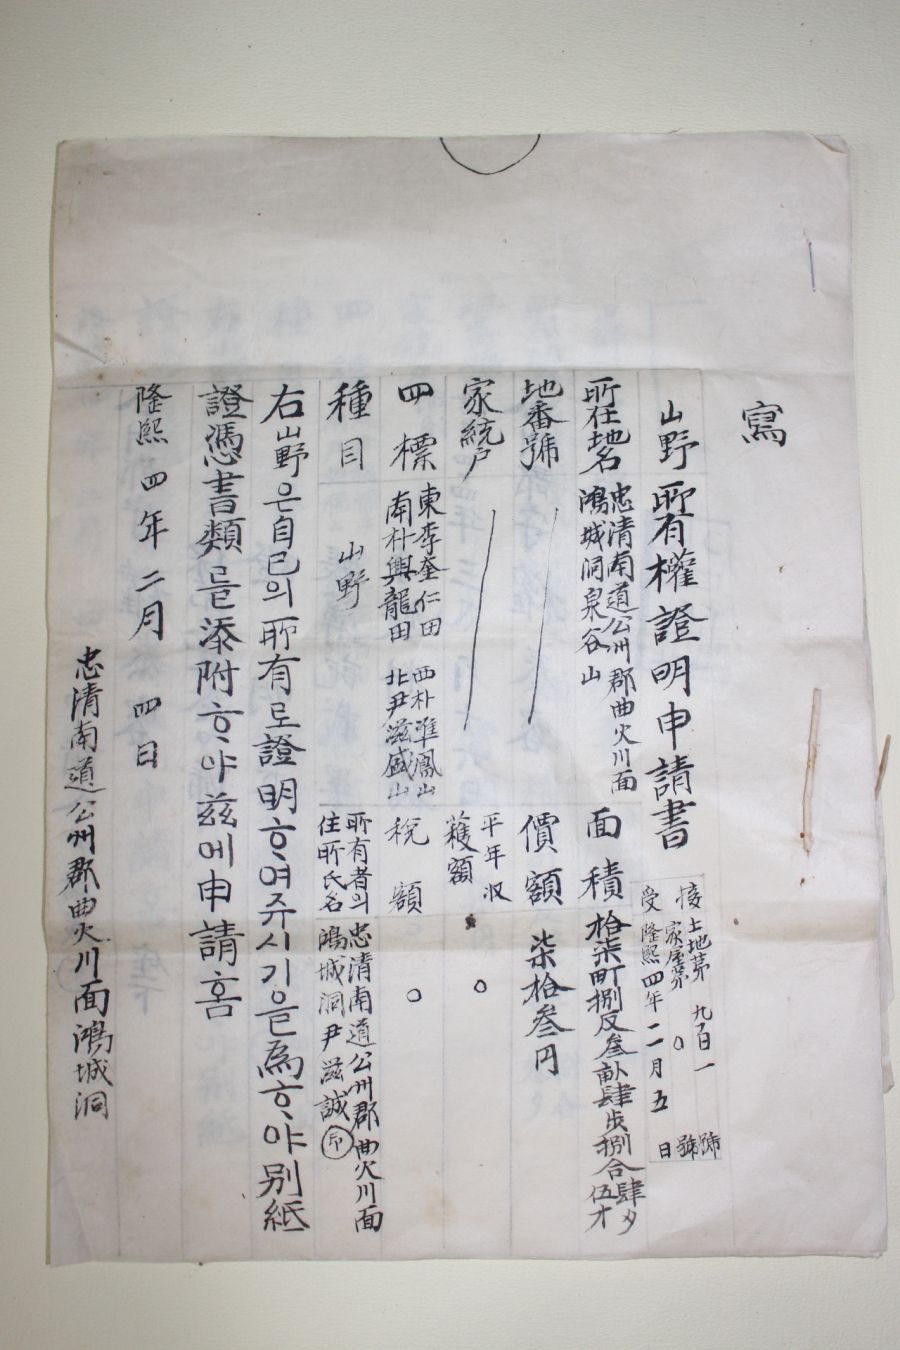 寫
山野所有權證明申請書
接
受
土地第 九百一 號
家屋第 〇 號
隆熙四年二月五日
所在地名
忠清南道公州郡曲火川面
鴻城洞泉谷山
面積
拾柒町捌反叁畝肆步捌合肆夕
伍才
地番號
價額
柒拾叁円
家統戶
平年収
穫額
〇
四標
東李奎仁田 西朴準鳳山
南朴興龍田 北尹滋盛山
稅額
〇
種目
山野
所有者의
住所氏名
忠清南道公州郡曲火川面
鴻城洞尹滋誠㊞
右山野은自己의所有로證明ᄒᆞ여주시기을爲ᄒᆞ야別紙
證憑書類를添附ᄒᆞ야玆에申請홈
隆熙四年二月四日
忠清南道公州郡曲火川面鴻城洞